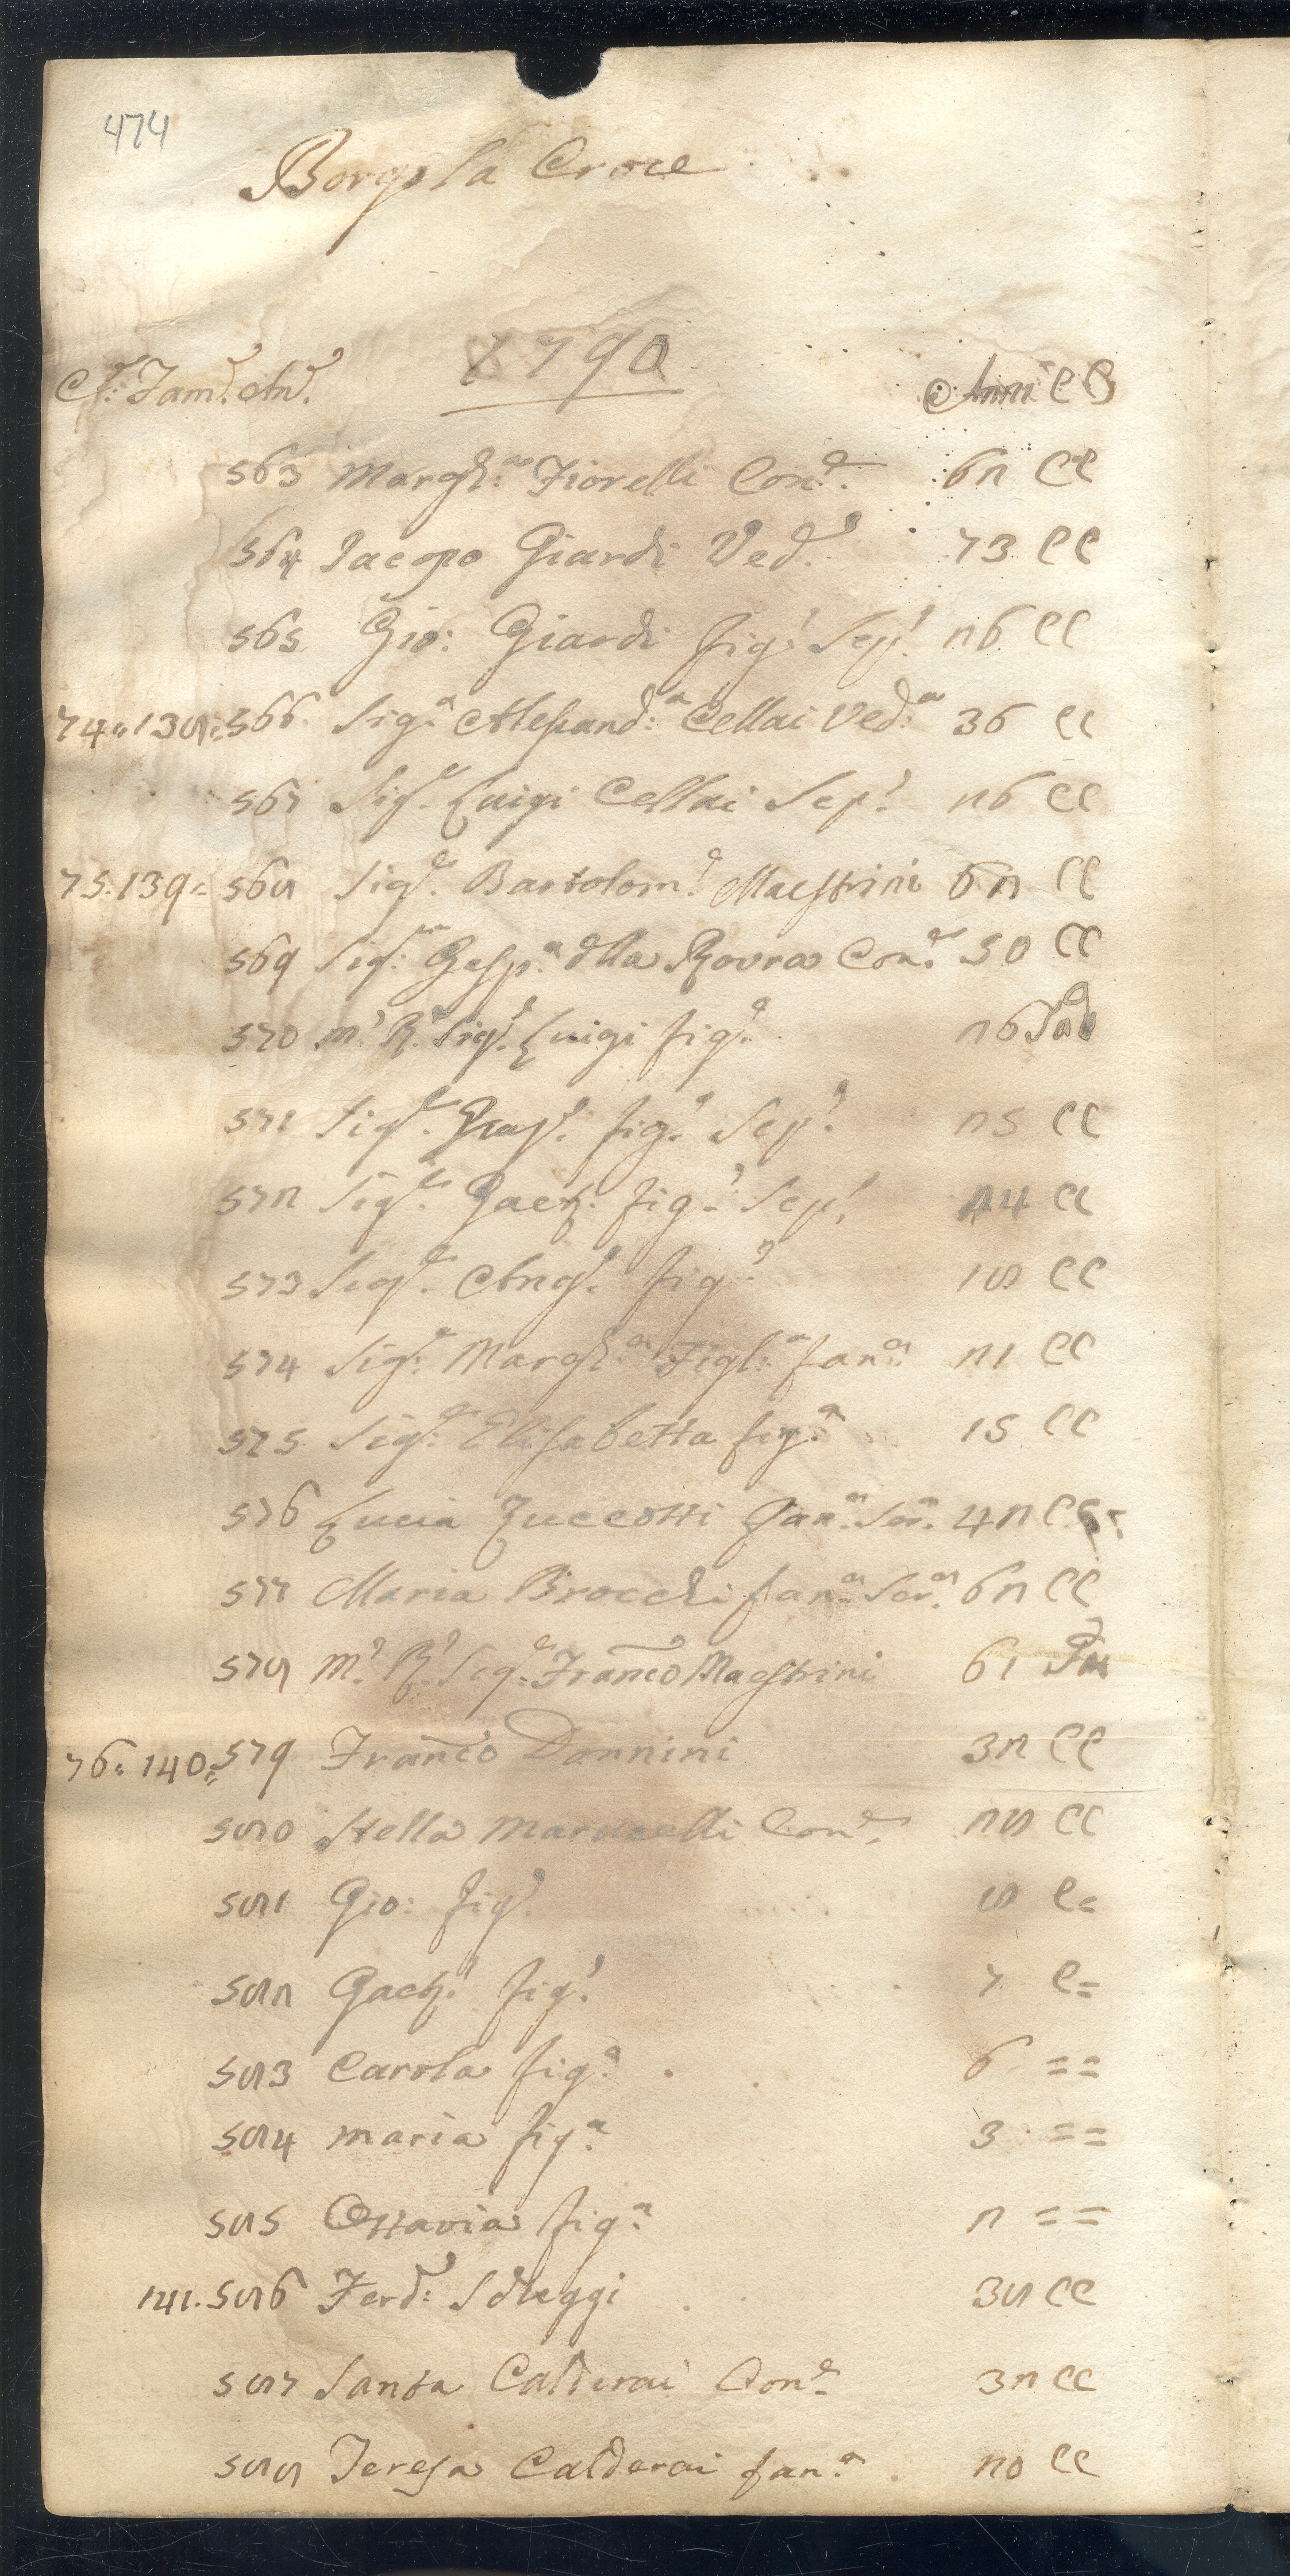 474
Borgo la Croce
1790
C.e Fam.e An.e Anni C C
563 Margh.a Fiorelli Con.e 62 CC
564 Iacopo Giardi Ved.o 73 CC
565 Gio: Giardi fig.o Sep.o 26 CC
74. 138. 566 Sig.a Alessand.a Cellai Ved.a 36 CC
567 Sig.e Luigi Cellai Sep.o 26 CC
75. 139. 568 Sig.e Bartolom.o Maestrini 62 CC
569 Sig.a Gesp.a della Rovra Con.e 50 CC
570 M.o R. Sig.e Luigi fig.o 26 Sad
571 Sig.e fig.o Sep.o 25 CC
572 Sig.e Gaet. fig.o Sep.o 24 CC
573 Sig.e Ang.o fig.o 18 CC
574 Sig.a Margh.a Figl.a fan.a 21 CC
575 Sig.a Elisabetta fig.a 15 CC
576 Lucia Zuccotti fan.a Ser.a 42 CC
577 Maria Brocchi fan.a Ser.a 62 CC
578 M.o R.o Sig.e Franco Maestrini 61
76. 140. 579 Franco Donnini 32 CC
580 Stella Con.e 28 CC
581 Gio: fig.o 8 C=
582 Gaet.o fig.o 7 C=
583 Carola fig.a 6 ==
584 Maria fig.a 3 ==
585 Ottavia fig.a 2 ==
141. 586 Ferd.o Sdleggi 38 CC
587 Santa Calderai Con.e 32 CC
588 Teresa Calderai fan.a 20 CC